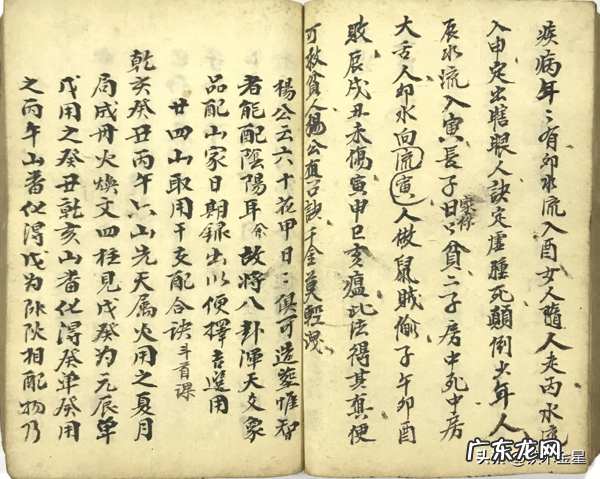 疾病年〻有卯水流入酉女人隨人走丙水流
入申定出瞎眼人訣定虛腫死顛倒少年人
辰水流入寅長子日〻貧二子房中死中房
家称
大舌人卯水向流寅人做鼠賊偷子午卯酉
敗辰戌丑未傷寅申巳亥瘟此法得其真便
可救貧人楊公有口訣千金莫輕洩
楊公云六十花甲日〻俱可造葬惟智
者能配陰陽耳余故將八卦渾天爻象
品配山家日期錄出以便擇吉選用
廿四山取用干支配合訣斗首課
乾亥癸丑丙午六山先天属火用之夏月
局成丹火煥文四柱見戊癸为元辰單
戊用之癸丑乾亥山者化得癸單癸用
之丙午山者化得戊为陰陽相配物乃
广东龙网
头条
金星